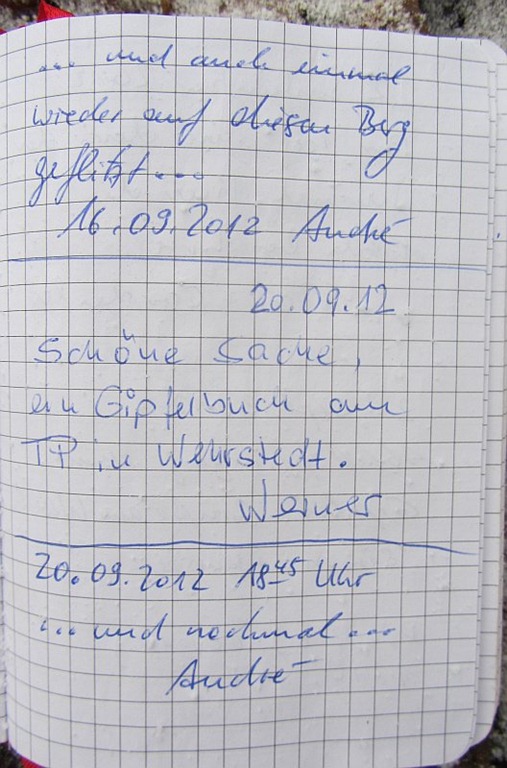 ... und auch einmal
wieder auf diesen Berg
geflitzt ...
16.09.2012 André
20.09.12
Schöne Sache,
ein Gipfelbuch am
TP in Wehrstedt.
Werner
20.09.2012 18⁴⁵ Uhr
... und nochmal ...
André